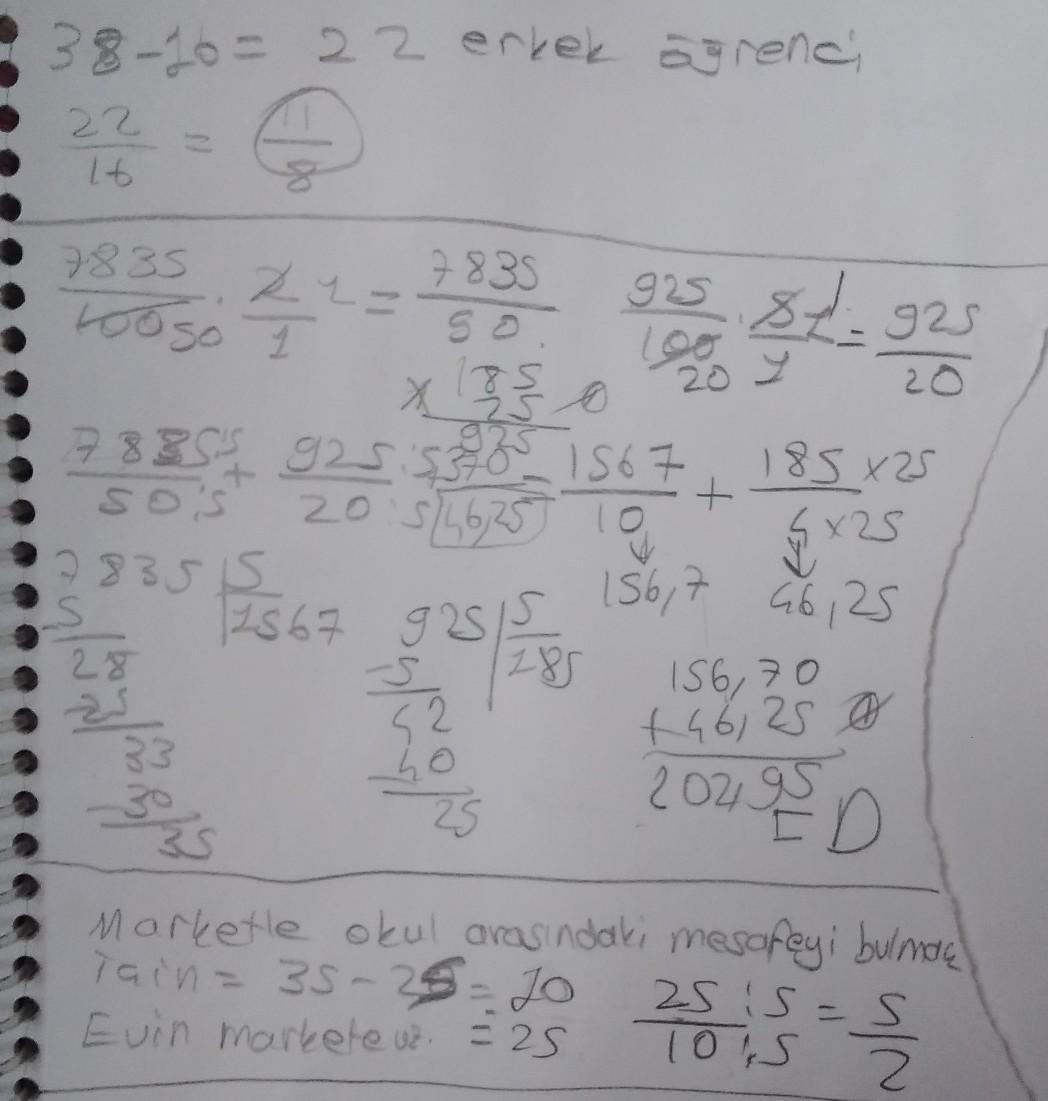 38-16= 22 erkek öğrenci
22/16 = 11/8
7835/100 50 . 2 1/1 = 7835/50
925/100 20 . 5 1/1 = 925/20
185
x 25
925
+370
46,25
7835:5/50:5 + 925:5/20:5 = 1567/10 + 185x25/4x25
156,7 46,25
7835 | 5
1567
5
28
25
33
30
35
925 | 5
185
-5
42
40
25
156,70
+46,25
202,95
D
Marketle okul arasındaki mesafeyi bulmak
için = 35-25 = 10
Evin markete uz. = 25
25:5/10:5 = 5/2